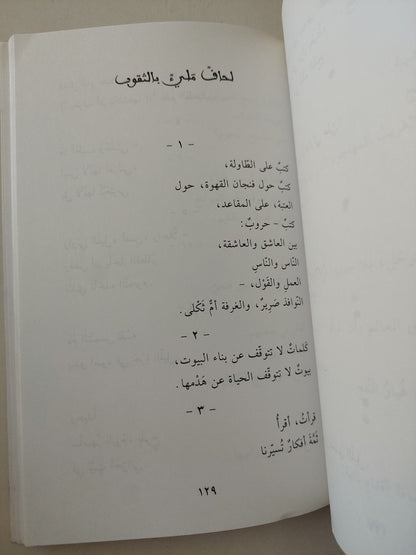 لحافٌ مليءٌ بالثقوب
- ١ -
كتبٌ على الطّاولة،
كتبٌ حول فنجان القهوة، حول
العتبة، على المقاعد،
كتبٌ - حروبٌ:
بين العاشق والعاشقة،
النّاس والنّاسِ
العملِ والقَوْل، -
النّوافذ صَريرٌ، والغرفة أمٌّ ثَكْلى.
- ٢ -
كَلماتٌ لا تتوقّف عن بناء البيوت،
بيوتٌ لا تتوقّف الحياة عن هَدْمها.
- ٣ -
قرأتُ، أقرأُ
ثمّةَ أفكارٌ تُسيّرنا
١٢٩